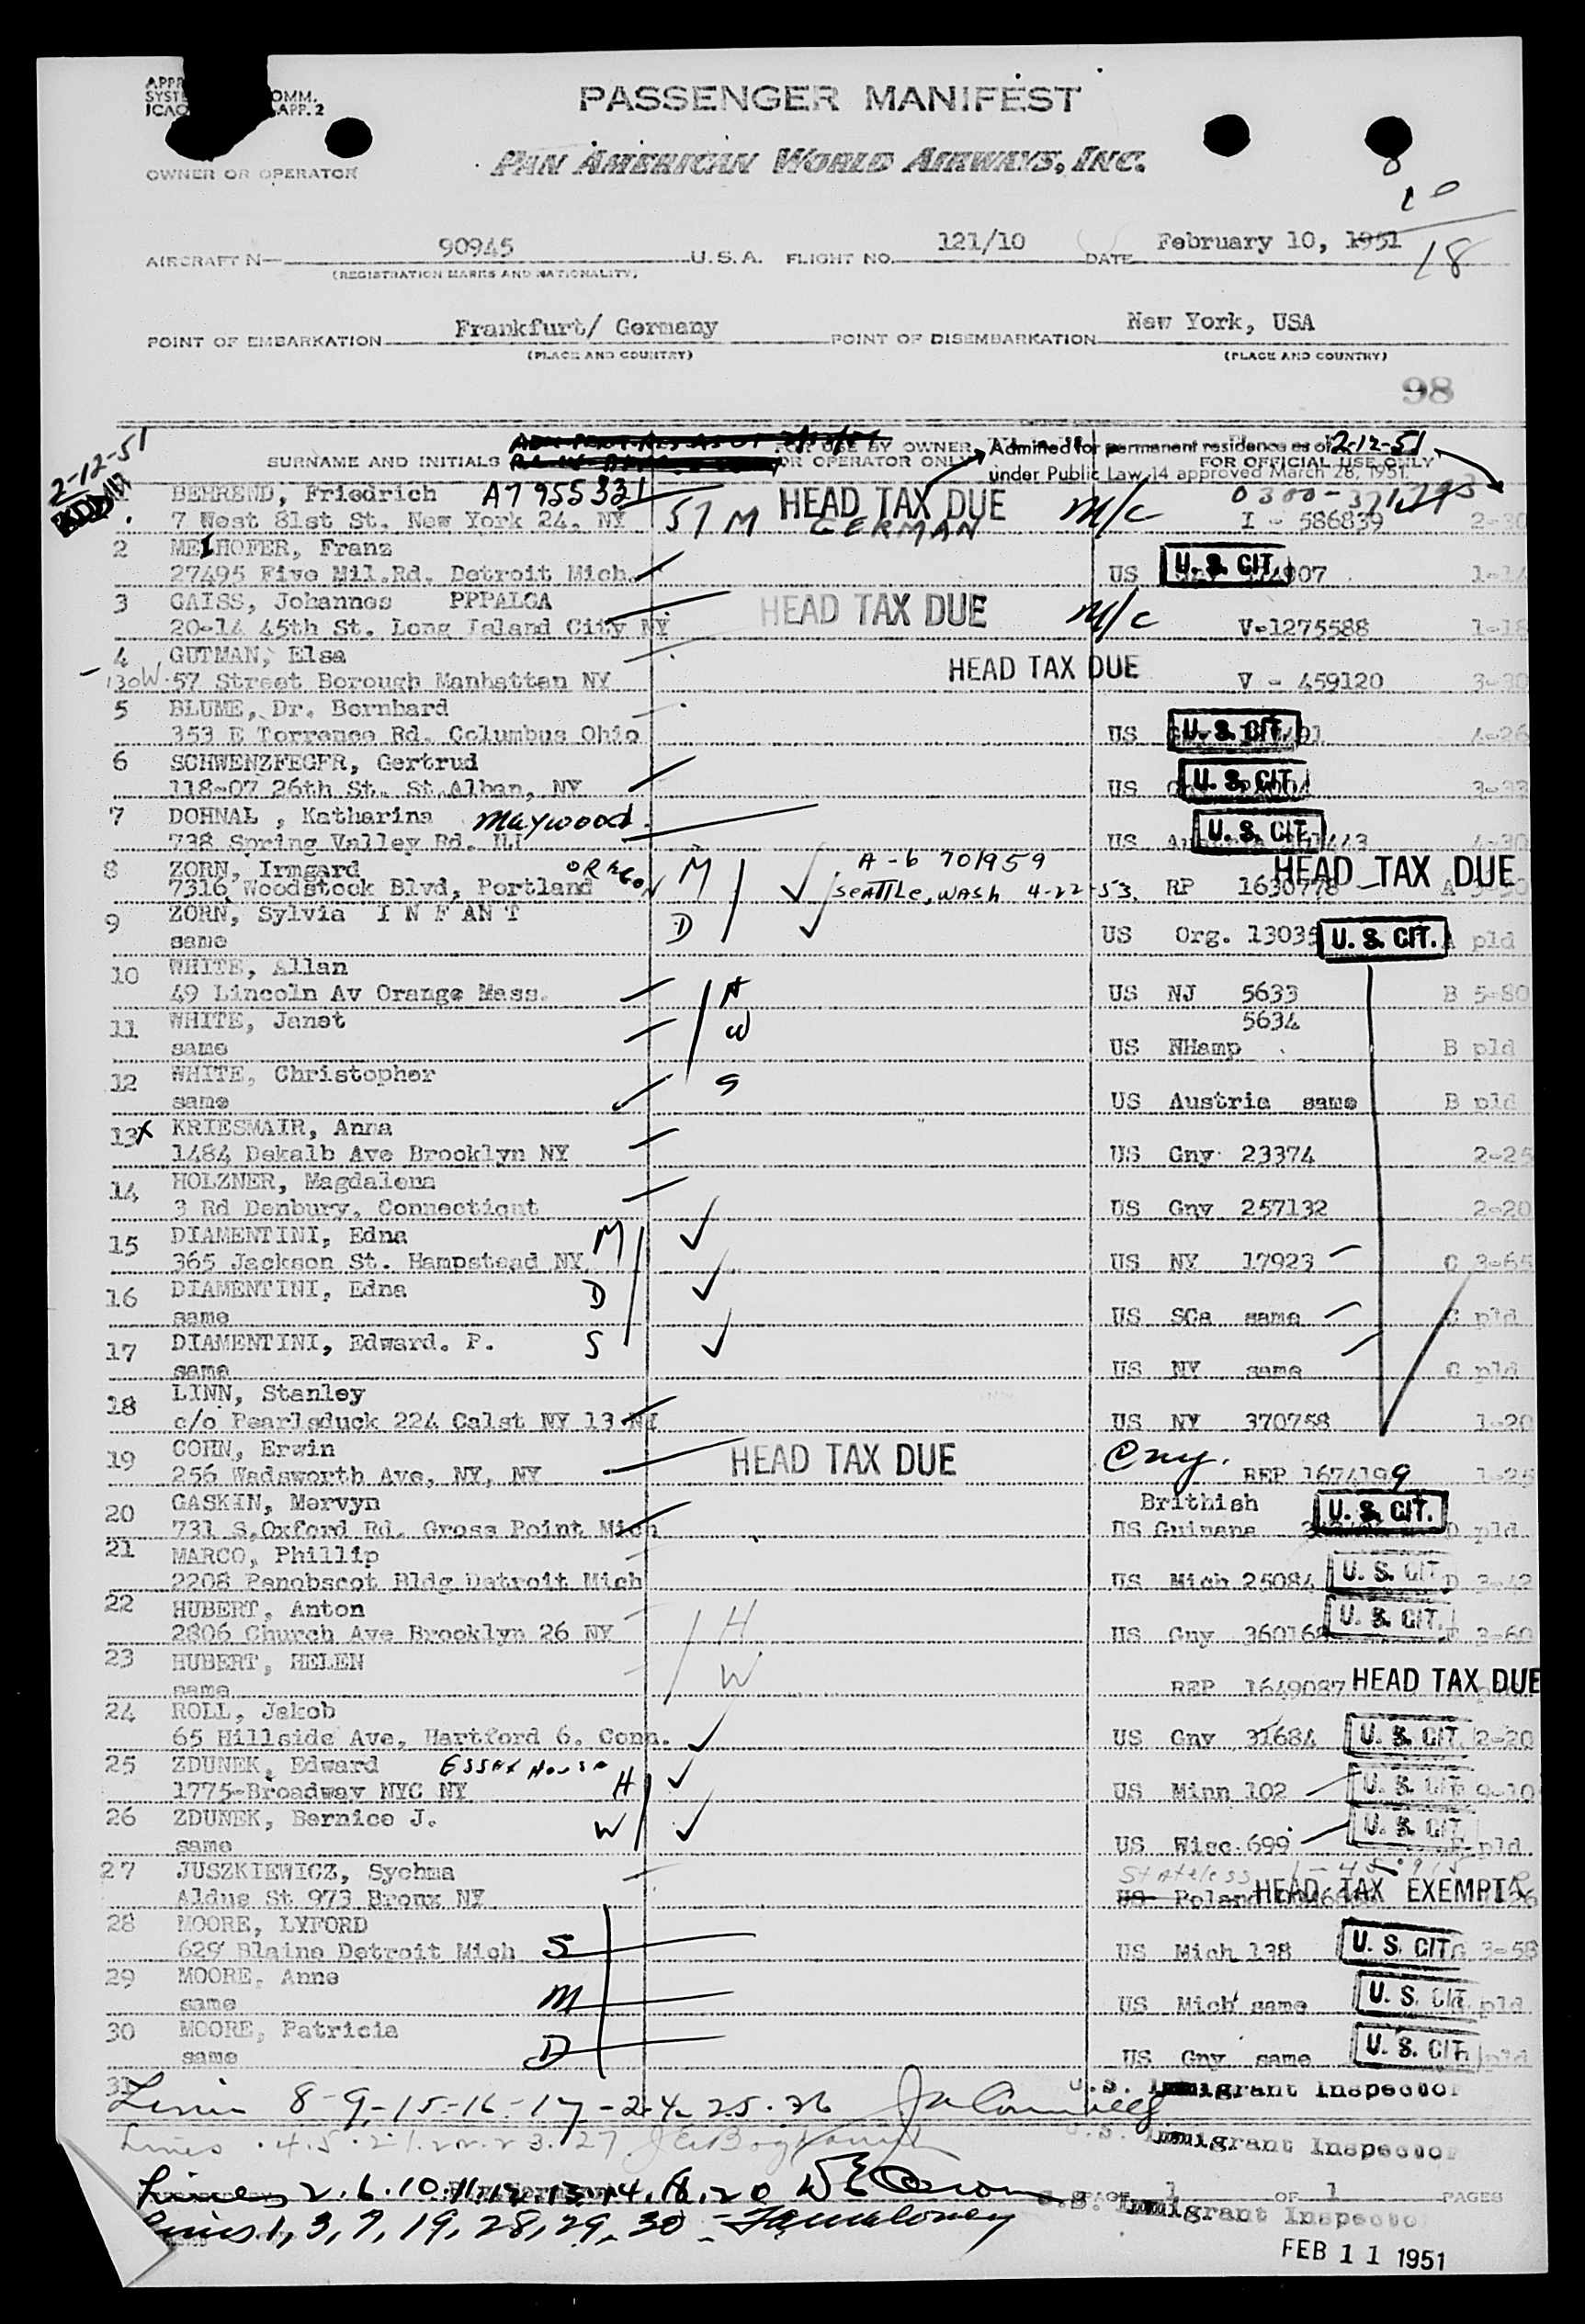 APPR
SYSTE OMM.
ICAO APP. 2
PASSENGER MANIFEST
PAN AMERICAN WORLD AIRWAYS, INC.
OWNER OR OPERATOR
18
AIRCRAFT N— 90945 U.S.A. FLIGHT NO. 121/10 DATE February 10, 1951
(REGISTRATION MARKS AND NATIONALITY)
POINT OF EMBARKATION Frankfurt/ Germany POINT OF DISEMBARKATION New York, USA
(PLACE AND COUNTRY) (PLACE AND COUNTRY)
98
2-12-51
SURNAME AND INITIALS FOR USE BY OWNER OR OPERATOR ONLY FOR OFFICIAL USE ONLY
Admitted for permanent residence as of 2-12-51
under Public Law 14 approved March 28, 1951
BEHREND, Friedrich A7955331 HEAD TAX DUE M/C
7 West 81st St. New York 24, NY 57 M GERMAN I - 586839 2-30
2 MEIHOFER, Franz
27495 Five Mil.Rd. Detroit Mich. US U. S. CIT. 1-14
3 GAISS, Johannes PPPALGA HEAD TAX DUE M/C
20-14 45th St. Long Island City NY V-1275588 1-18
4 GUTMAN, Elsa HEAD TAX DUE
130W 57 Street Borough Manhattan NY V - 459120 3-30
5 BLUME, Dr. Bernhard
353 E Torrence Rd. Columbus Ohio US U. S. CIT. 4-26
6 SCHWENZFEGER, Gertrud
118-07 26th St. St.Alban, NY US U. S. CIT. 3-33
7 DOHNAL , Katharina Maywood.
738 Spring Valley Rd. US U. S. CIT. 4-30
8 ZORN, Irmgard OREGON M A-6 701959 HEAD TAX DUE
7316 Woodstock Blvd, Portland SEATTLE, WASH 4-22-53. RP 1630778 A
9 ZORN, Sylvia I N F AN T D
same US Org. 13035 U. S. CIT. A pld
10 WHITE, Allan H
49 Lincoln Av Orange Mass. US NJ 5633 B 5-80
11 WHITE, Janet W 5634
same US NHamp B pld
12 WHITE, Christopher S
same US Austria same B pld
13x KRIESMAIR, Anna
1484 Dekalb Ave Brooklyn NY US Gny 23374 2-25
14 HOLZNER, Magdalena
3 Rd Danbury, Connecticut US Gny 257132 2-20
15 DIAMENTINI, Edna M
365 Jackson St. Hampstead NY US NY 17923 C 3-65
16 DIAMENTINI, Edna D
same US SCa same C pld
17 DIAMENTINI, Edward. P. S
same US NY same C pld
18 LINN, Stanley
c/o Pearlsduck 224 Calst NY 13 NY US NY 370758 1-20
19 COHN, Erwin HEAD TAX DUE Gny.
256 Wadsworth Ave, NY, NY REP 1674199 1-25
20 GASKIN, Mervyn Brithish
731 S.Oxford Rd. Gross Point Mich US Guinana U. S. CIT. D pld
21 MARCO, Phillip
2208 Penobscot Bldg Detroit Mich US Mich 25084 U. S. CIT. D 3-42
22 HUBERT, Anton H
2806 Church Ave Brooklyn 26 NY US Gny 360168 U. S. CIT. 3-60
23 HUBERT, HELEN W
same REP 1649087 HEAD TAX DUE
24 ROLL, Jakob
65 Hillside Ave, Hartford 6. Conn. US Gny 31684 U. S. CIT. 2-20
25 ZDUNEK, Edward ESSEX House
1775-Broadway NYC NY H US Minn 102 U. S. CIT. 9-10
26 ZDUNEK, Bernice J. W
same US Wisc. 699 U. S. CIT. pld.
27 JUSZKIEWICZ, Sychma Stateless
Aldus St 973 Bronx NY US Poland HEAD TAX EXEMPT
28 MOORE, LYFORD
629 Blaine Detroit Mich S US Mich 138 U. S. CIT. G 3-58
29 MOORE, Anne
same M US Mich same U. S. CIT. pld
30 MOORE, Patricia
same D US Gny same U. S. CIT. pld
31
Lines 8-9-15-16-17-24-25-26 U.S. Immigrant Inspector
Lines 4.5.21.22.23.27 U.S. Immigrant Inspector
Lines 2.6.10.11.12.13.14.18.20 PAGE 1 OF 1 PAGES
U.S. Immigrant Inspector
Lines 1, 3, 7, 19, 28, 29, 30 - Mahoney
FEB 11 1951